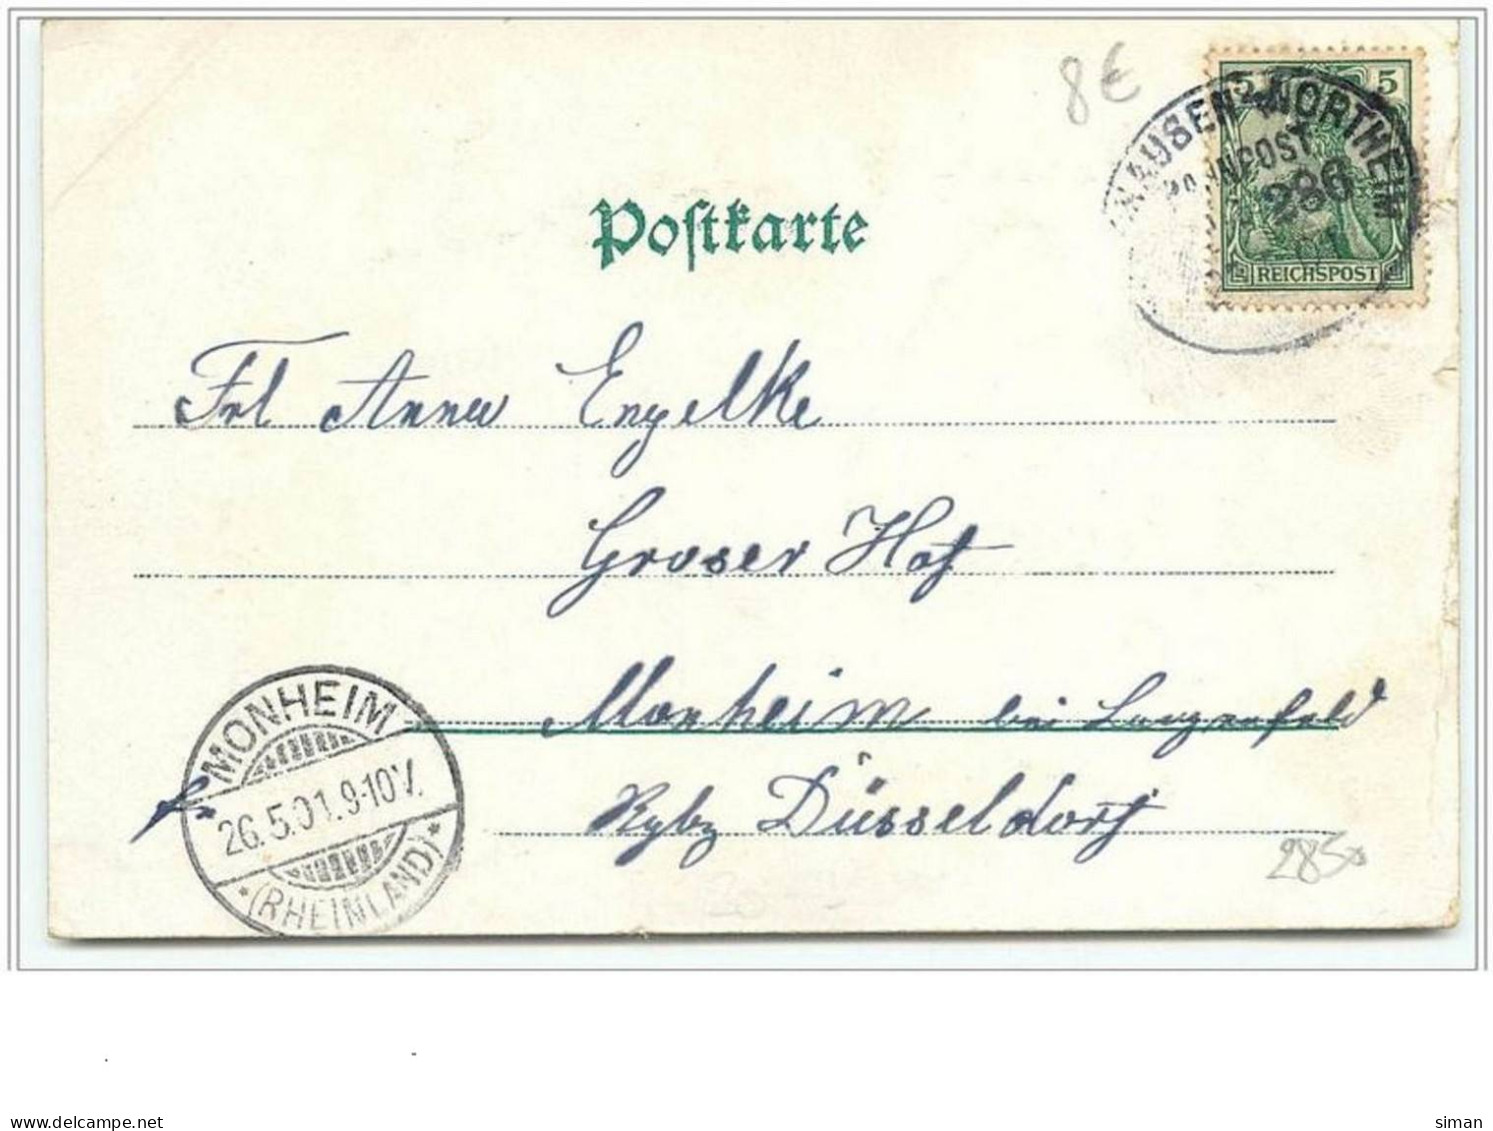 8€
5 5
HAUSEN-NORTHEIM
BAHNPOST
286
REICHSPOST
Postkarte
Frl Anna Engelke
Groser Hof
Monheim bei Langenfeld
Rgbz Düsseldorf
MONHEIM
26.5.01.9-10V.
*(RHEINLAND)*
285
delcampe.net
siman